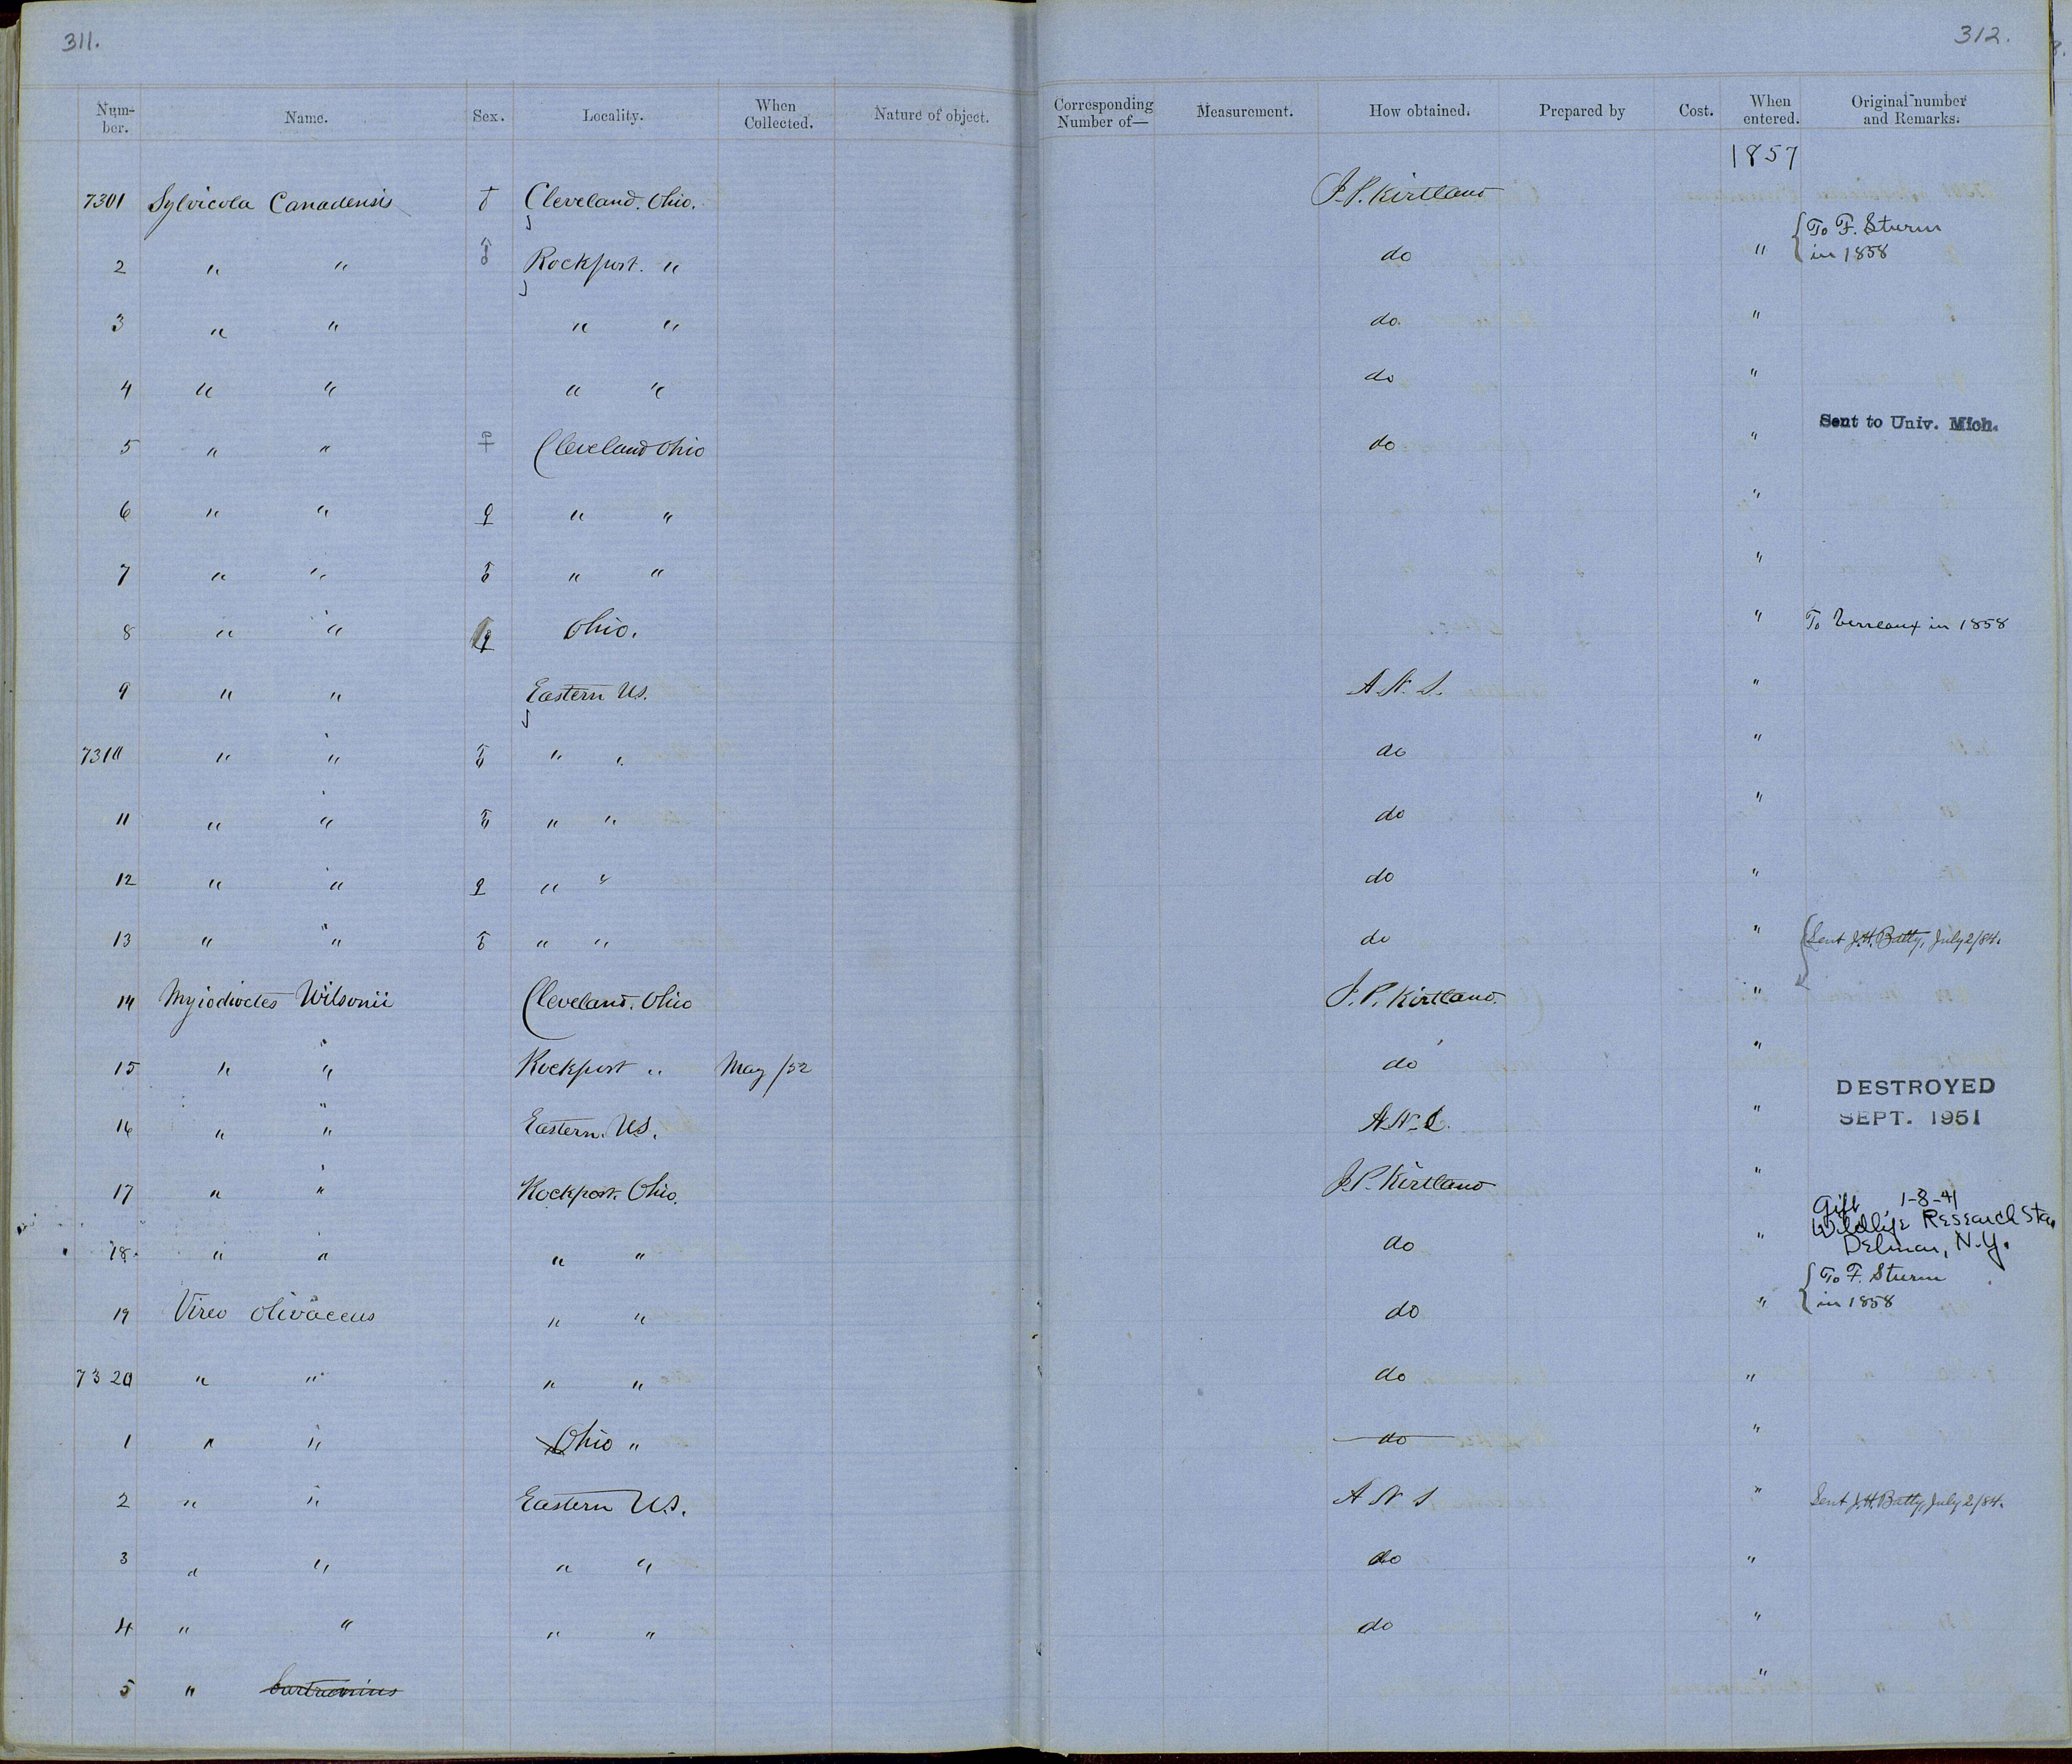 311.
312.
Num-ber. Name. Sex. Locality. When Collected. Nature of object. Corresponding Number of— Measurement. How obtained. Prepared by Cost. When entered. Original number and Remarks.
1857
7301 Sylvicola Canadensis Cleveland. Ohio. J. P. Kirtland
2 " " ♂ Rockport. " do " { To F. Sturm in 1858
3 " " " " do. "
4 " " " " do "
5 " " ♀ Cleveland Ohio do " Sent to Univ. Mich.
6 " " ♀ " " "
7 " " ♂ " " "
8 " " ♀ Ohio. " To Verreaux in 1858
9 " " Eastern U.S. A. N. S. "
7310 " " ♂ " " do "
11 " " ♂ " " do "
12 " " ♀ " " do "
13 " " ♂ " " do " { Sent J. H. Batty, July 2/84.
14 Myiodioctes Wilsonii Cleveland. Ohio J. P. Kirtland. "
15 " " Rockport " May /52 do "
DESTROYED
SEPT. 1951
16 " " Eastern. U.S. A. N. S. "
17 " " Rockport. Ohio. J. P. Kirtland "
Gift 1-8-41
Wildlife Research Sta.
Delmar, N.Y.
18. " " " " do "
19 Vireo olivaceus " " do " { To F. Sturm in 1858
7320 " " " " do "
1 " " Ohio " do "
2 " " Eastern U.S. A N S " Sent J. H. Batty, July 2/84.
3 " " " " do "
4 " " " " do "
5 " bartramius "